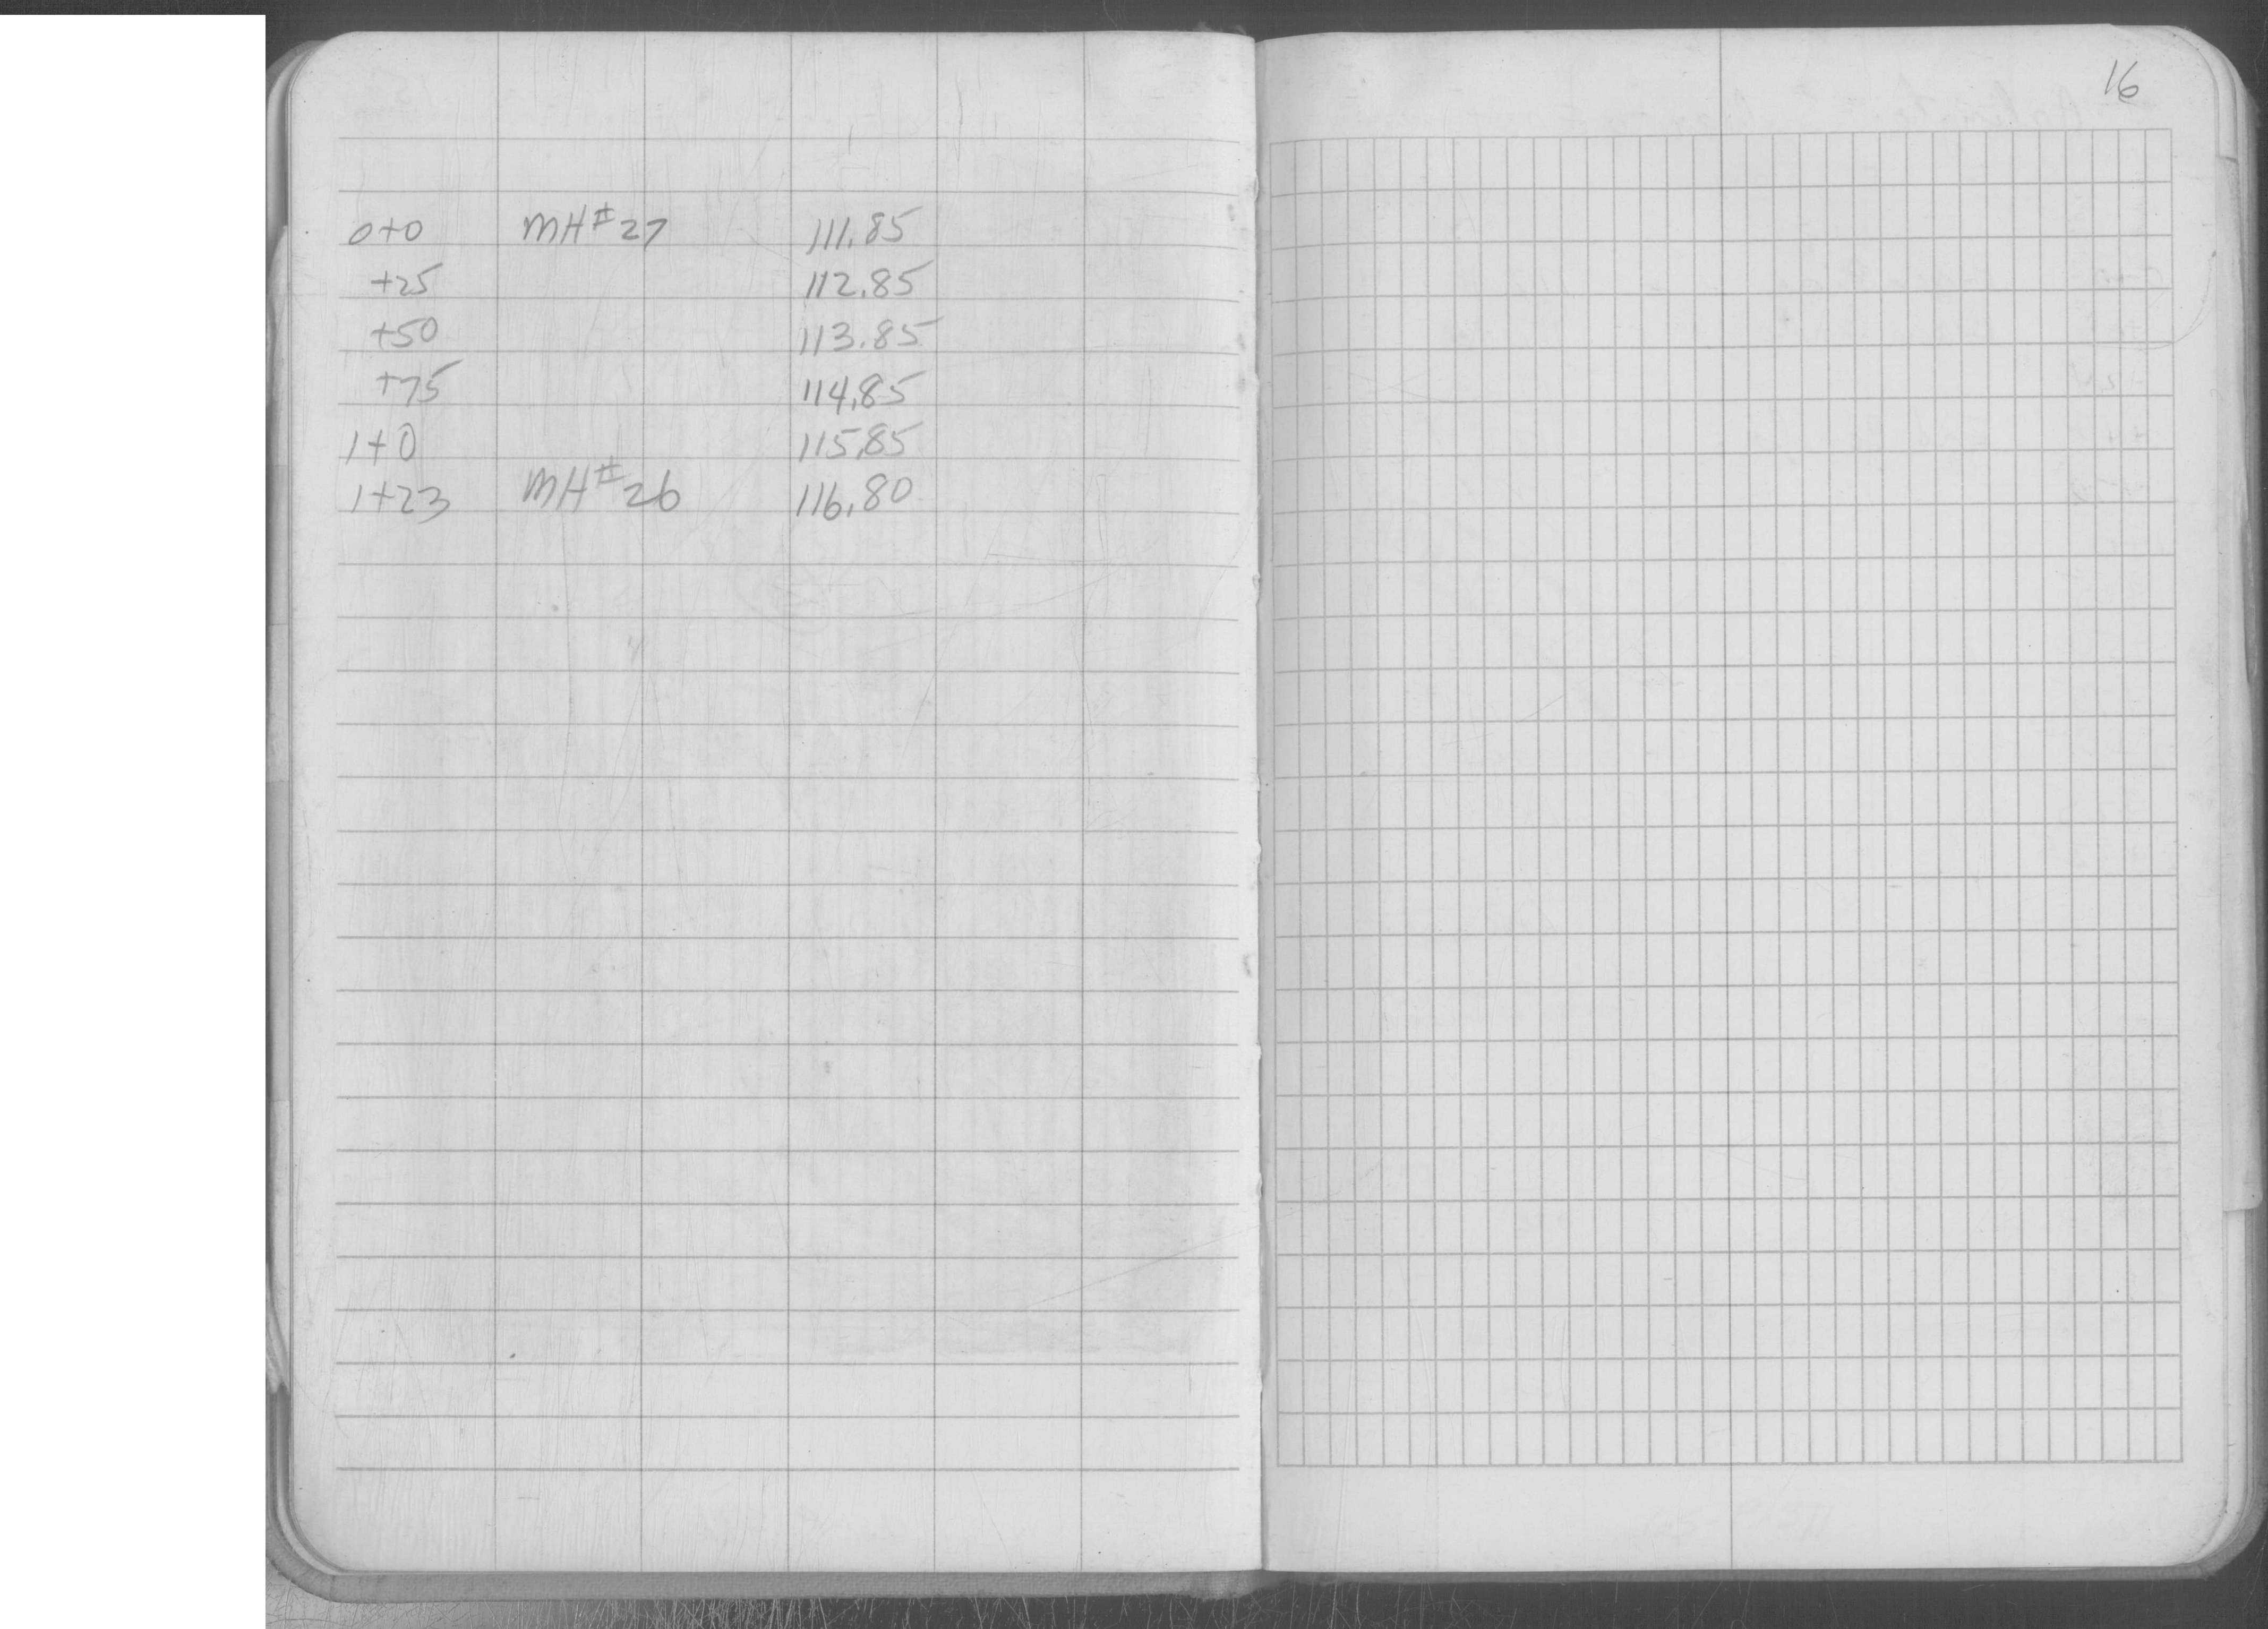 16
0+0 MH#27 111.85
+25 112.85
+50 113.85
+75 114.85
1+0 115.85
1+23 MH#26 116.80